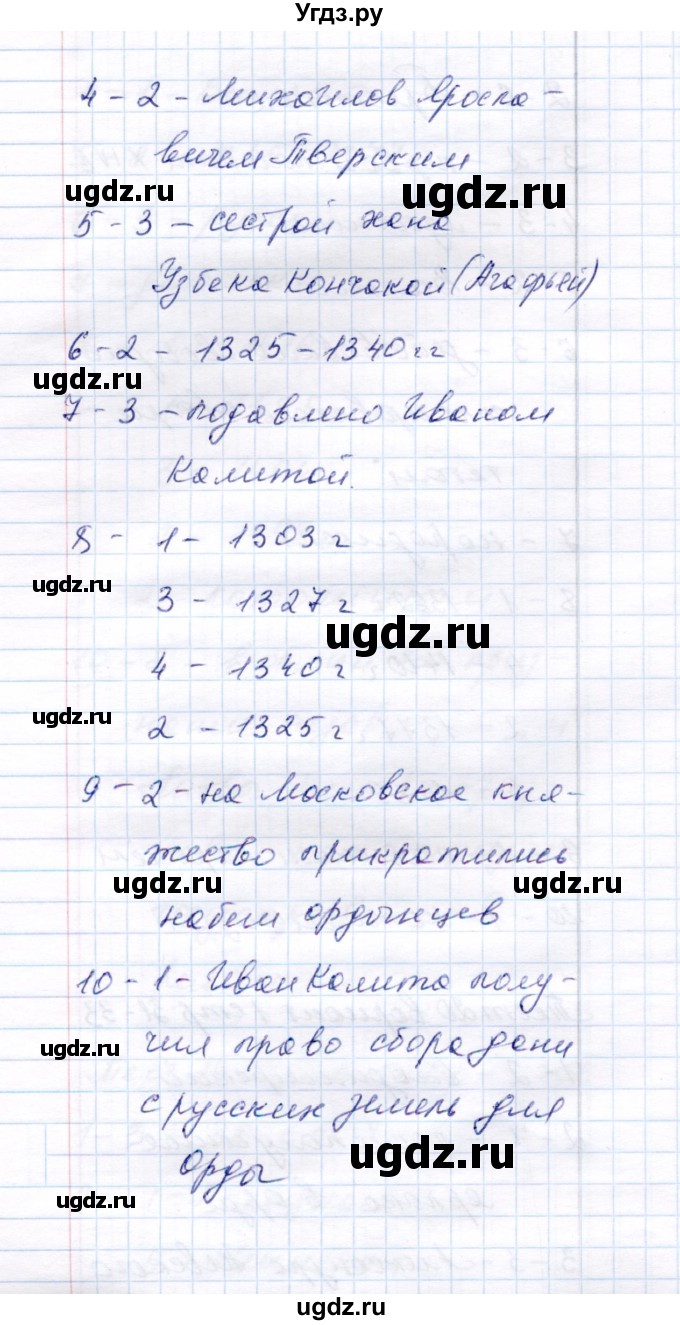 Угдз.ру
4 - 2 - Михаилов Яросла-
вичем Тверским
ugdz.ru
ugdz.ru
5 - 3 - сестрой хана
Узбека Кончакой (Агафьей)
6 - 2 - 1325 - 1340 гг
ugdz.ru
7 - 3 - подавлено Иваном
Калитой.
8 - 1 - 1303 г
ugdz.ru
3 - 1327 г
ugdz.ru
4 - 1340 г
ugdz.ru
2 - 1325 г
9 - 2 - на Московское кня-
жество прикратились
ugdz.ru
ugdz.ru
набеги ордынцев
10 - 1 - Иван Калита полу-
чил право сбора дани
ugdz.ru
с русских земель для
ugdz.ru
Орды
ugdz.ru
ugdz.ru